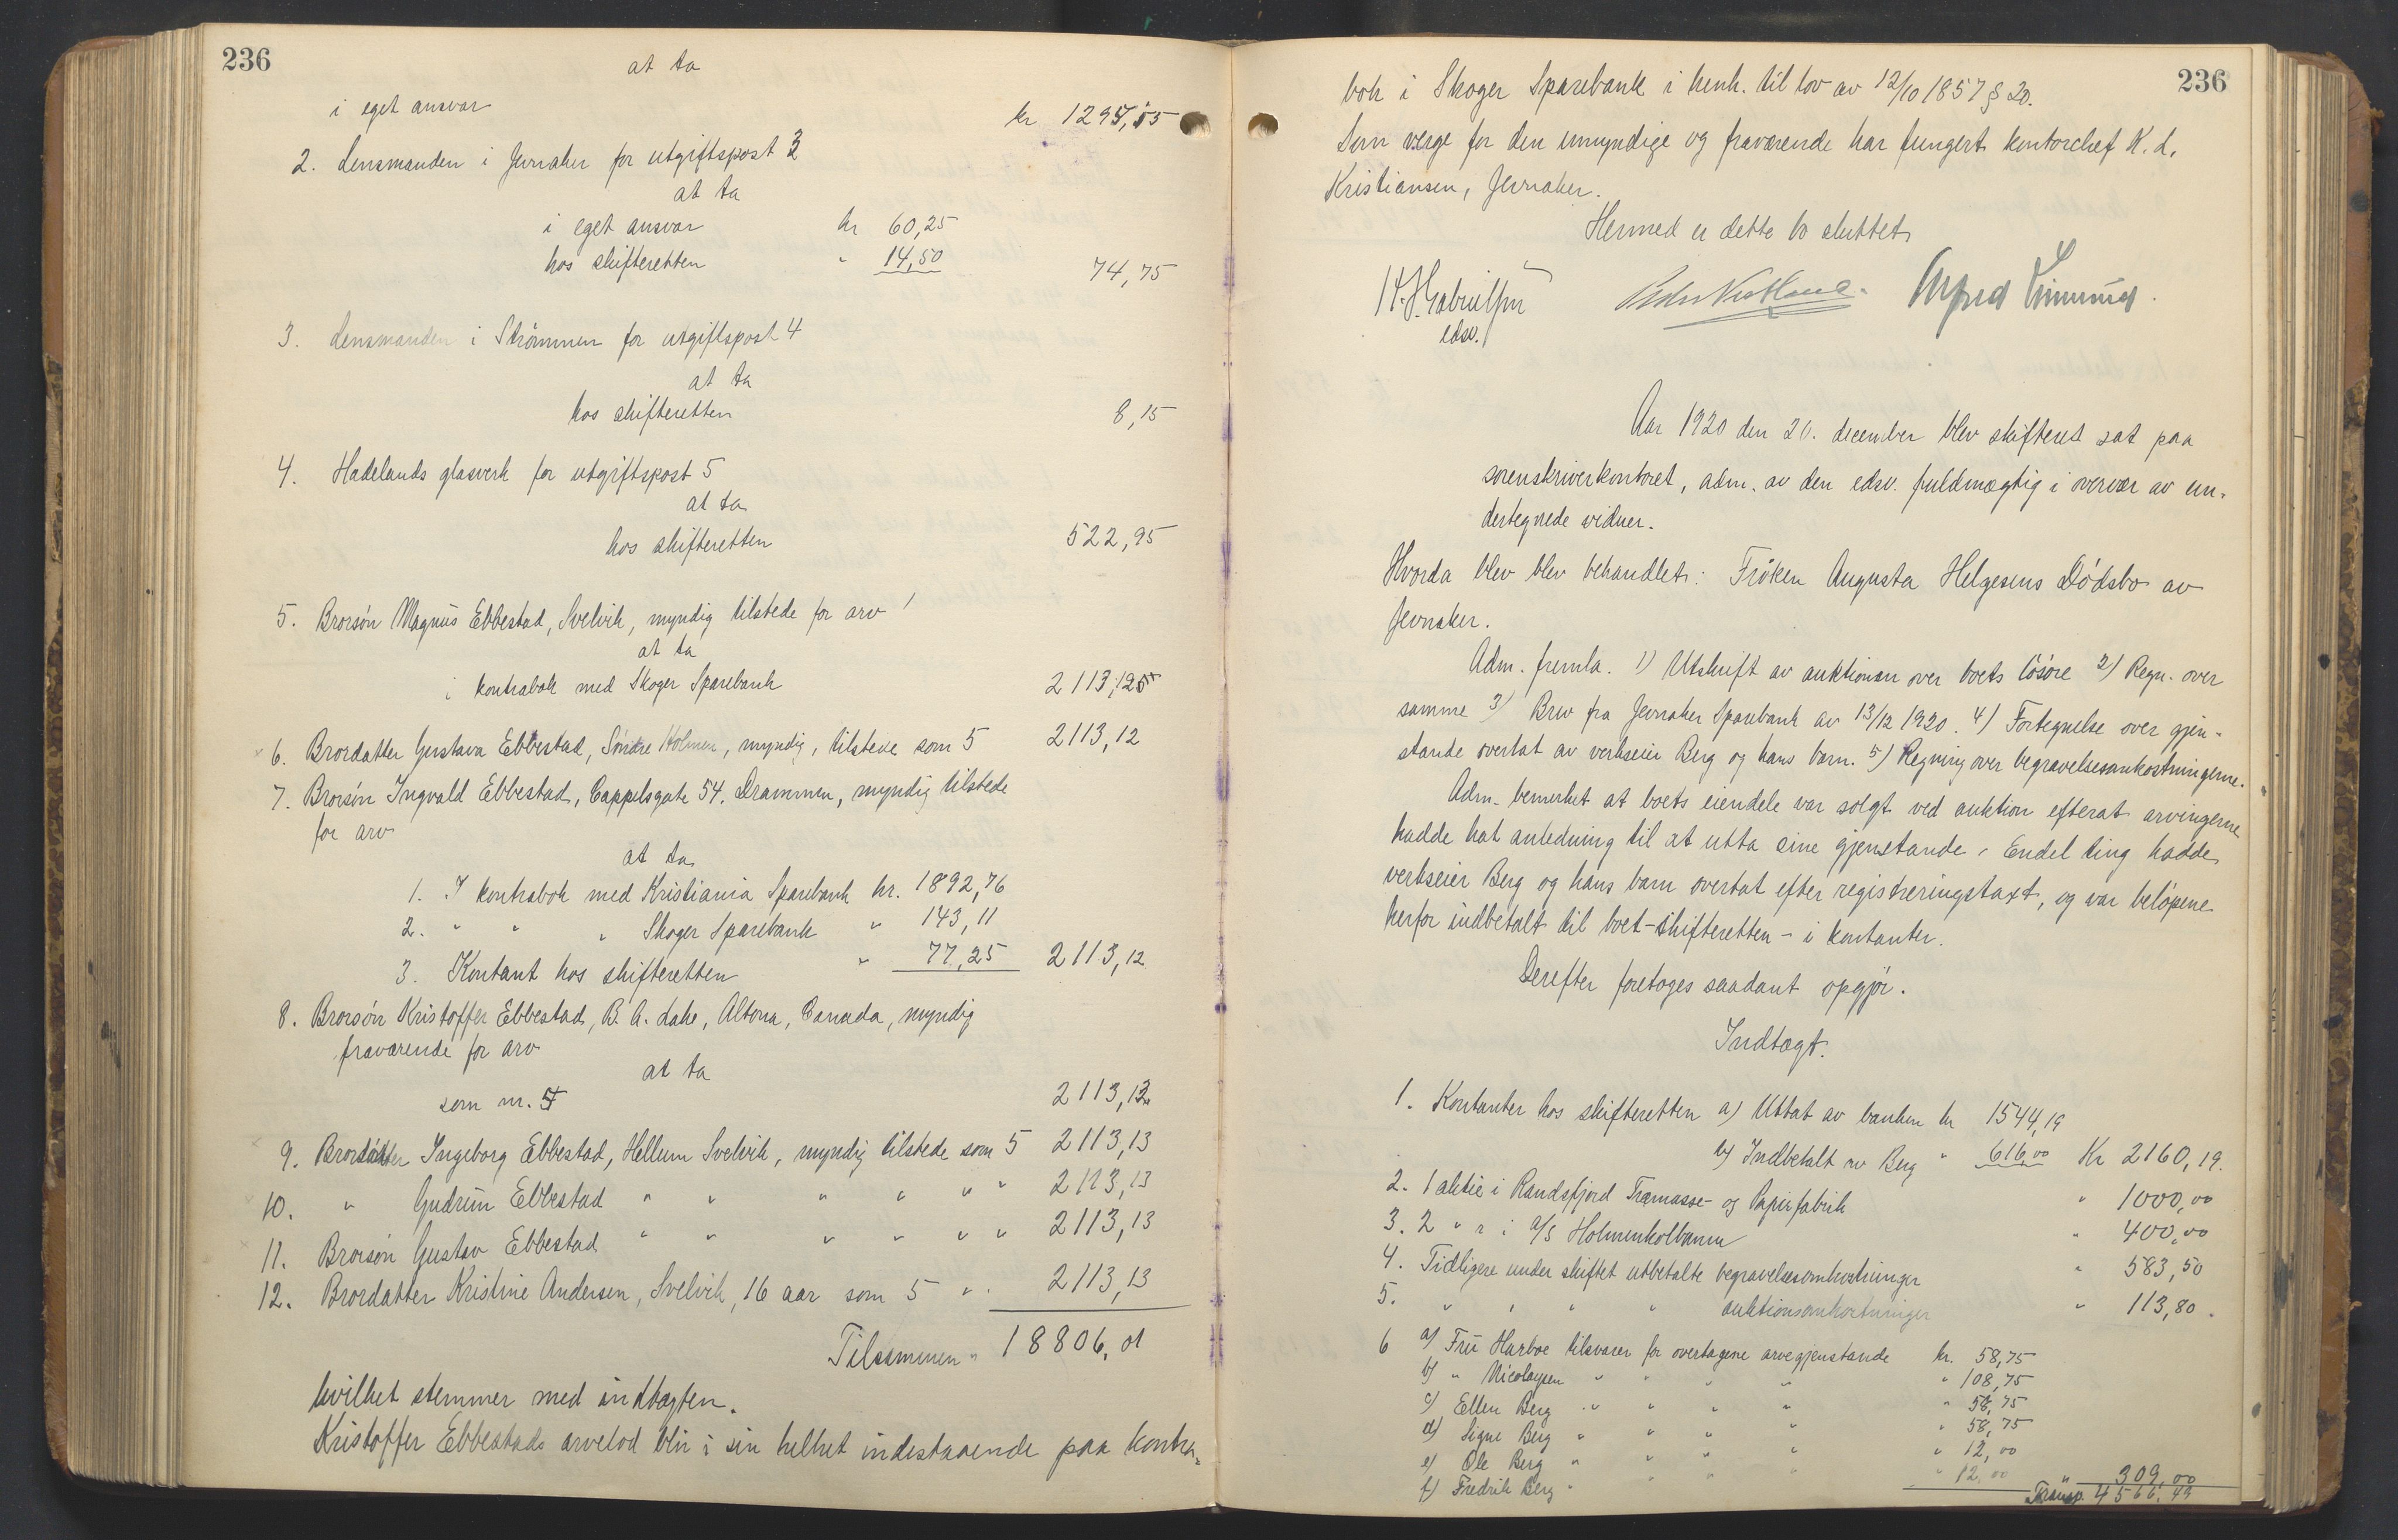 236
at ta
i eget ansvar kr 1295,55
2. Lensmanden i Jevnaker for utgiftspost 3
at ta
i eget ansvar kr 60,25
hos skifteretten " 14,50 74,75
3. Lensmanden i Strömmen for utgiftspost 4
at ta
hos skifteretten 8,15
4. Hadelands glasverk for utgiftspost 5
at ta
hos skifteretten 522,95
5. Brorsön Magnus Ebbestad, Svelvik, myndig tilstede for arv
at ta
i kontrabok med Skoger Sparebank 2113,12
6. Brordatter Gustava Ebbestad, Söndre Holmen, myndig, tilstede som 5 2113,12
7. Brorsön Ingvald Ebbestad, Cappelsgate 54, Drammen, myndig tilstede
for arv
at ta
1. I kontrabok med Kristiania Sparebank kr. 1892,76
2. " " " Skoger Sparebank " 143,11
3. Kontant hos skifteretten " 77,25 2113,12
8. Brorsön Kristoffer Ebbestad, B. A. Lake, Altona, Canada, myndig
fraværende for arv
at ta
som nr. 5 2113,12
9. Brordatter Ingeborg Ebbestad, Hellum Svelvik, myndig tilstede som 5 2113,13
10. " Gudrun Ebbestad " " " " " " 2113,13
11. Brorsön Gustav Ebbestad " " " " " " 2113,13
12. Brordatter Kristine Andersen, Svelvik, 16 aar som 5 " 2113,13
Tilsammen " 18806,01
hvilket stemmer med indtægten.
Kristoffer Ebbestads arvelod blir i sin helhet indestaaende paa kontra-
236
bok i Skoger Sparebank i henh. til lov av 12/10 1857 § 20.
Som verge for den umyndige og fraværende har fungert kontorchef K. L.
Kristiansen, Jevnaker.
Hermed er dette bo sluttet
edsv.
Alfred
Aar 1920 den 20. december blev skifteret sat paa
sorenskriverkontoret, adm. av den edsv. fuldmægtig i overvær av un-
dertegnede vidner.
Hvorda blev blev behandlet: Fröken Augusta Helgesens Dödsbo av
Jevnaker.
Adm. fremla. 1) Utskrift av auktionen over boets lösöre 2) Regn. over
samme 3) Brev fra Jevnaker Sparebank av 13/12 1920. 4) Fortegnelse over gjen-
stande overtat av verkseier Berg og hans barn. 5) Regning over begravelsesomkostningerne.
Adm. bemerket at boets eiendele var solgt ved auktion efterat arvingerne
hadde hat anledning til at utta sine gjenstande. Endel ting hadde
verkseier Berg og hans barn overtat efter registreringstaxt, og var belöpene
herfor indbetalt til boet - skifteretten - i kontanter.
Derefter foretoges saadant opgjör.
Indtægt.
1. Kontanter hos skifteretten a) Uttat av banken kr 1544,19
b) Indbetalt av Berg " 616,00 Kr 2160,19.
2. 1 aktie i Randsfjord Træmasse- og Papirfabrik " 1000,00
3. 2 " " i A/S Holmenkolbanen " 400,00
4. Tidligere under skiftet utbetalte begravelsesomkostninger " 583,50
5. " " " " auktionsomkostninger " 113,80.
6 a) Fru Harboe tilsvarer for overtagne arvegjenstande kr. 58,75
b) " Nicolaysen " " " " " 108,75
c) Ellen Berg " " " " " 58,75
d) Signe Berg " " " " " 58,75
e) Ole Berg " " " " " 12,00
f) Fredrik Berg " " " " " 12,00 " 309,00
Transp. 4566,49